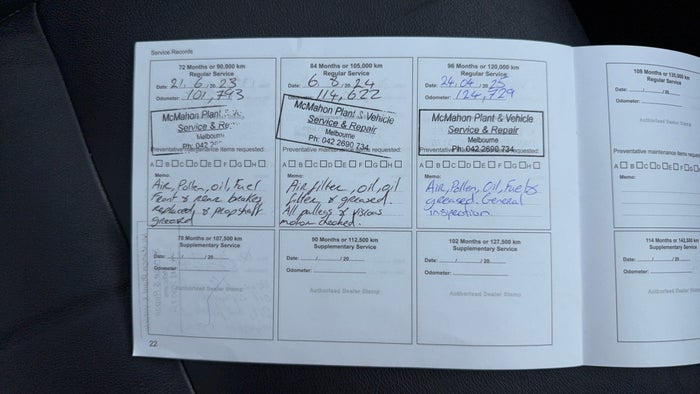 Service Records
72 Months or 90,000 km
Regular Service
Date: 21. 6. 20 23
Odometer: 101,793
McMahon Plant & Ve
Service & Re
Melbourne
Ph: 042 26
Preventative maintenance items requested:
A B C D E F G H
Memo:
Air, Pollen, oil, Fuel
Front & rear brakes
replaced & propshaft
greased
84 Months or 105,000 km
Regular Service
Date: 6. 8. 20 24
Odometer: 114,622
McMahon Plant & Vehicle
Service & Repair
Melbourne
Ph: 042 2690 734
Preventative maintenance items requested:
A B C D E F G H
Memo:
Air filter, oil, oil
filter & greased.
All pulleys & viscous
motor checked.
96 Months or 120,000 km
Regular Service
Date: 24. 04. 20 25
Odometer: 124,729
McMahon Plant & Vehicle
Service & Repair
Melbourne
Ph: 042 2690 734
Preventative maintenance items requested:
A B C D E F G H
Memo:
Air, Pollen, Oil, Fuel &
greased. General
inspection.
108 Months or 135,000
Regular Service
Date: / / 20
Odometer:
Authorised Dealer Stamp
Preventative maintenance items req
A B C D E F
Memo:
78 Months or 107,500 km
Supplementary Service
Date: / / 20
Odometer:
Authorised Dealer Stamp
90 Months or 112,500 km
Supplementary Service
Date: / / 20
Odometer:
Authorised Dealer Stamp
102 Months or 127,500 km
Supplementary Service
Date: / / 20
Odometer:
Authorised Dealer Stamp
114 Months or 142,500 km
Supplementary Serv
Date: / / 20
Odometer:
Authorised Dealer Stamp
22